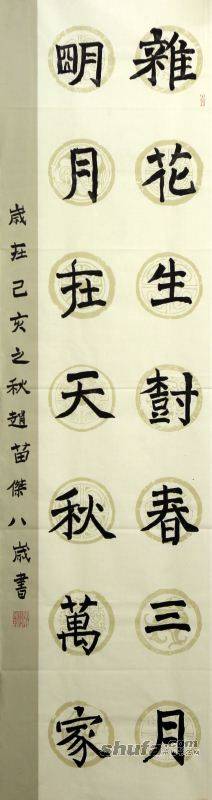 雜花生樹春三月
明月在天秋萬家
歲在己亥之秋趙苗傑八歲書